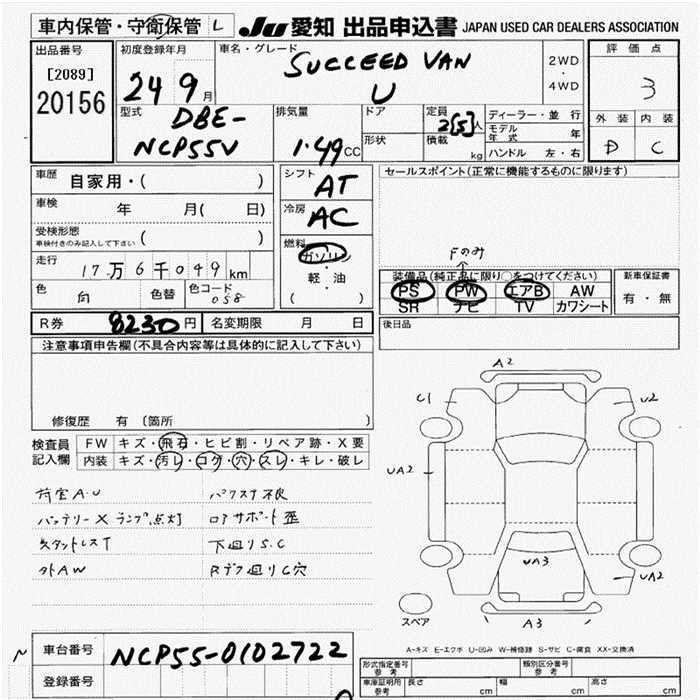 車内保管・守衛保管 L
JU 愛知 出品申込書 JAPAN USED CAR DEALERS ASSOCIATION
出品番号
[2089]
20156
初度登録年月
24 9月
車名・グレード
SUCCEED VAN
U
2WD
・
4WD
評価点
3
外装 内装
D C
型式
DBE-
NCP55V
排気量
1.49cc
ドア
形状
定員
2[5]人
積載 kg
ディーラー・並行
モデル年式 年
ハンドル 左・右
車歴 自家用・( )
車検 年 月( 日)
受検形態
車検付きのみ記入して下さい ( )
走行 17万6千049km
色 白 色替 色コード 058
シフト AT
冷房 AC
燃料
ガソリン
・
軽・油
( )
セールスポイント(正常に機能するものに限ります)
Fのみ
装備品(純正品に限り○をつけてください)
PS PW エアB AW
SR ナビ TV カワシート
新車保証書
有・無
R券 8230円 名変期限 月 日
後日品
注意事項申告欄(不具合内容等は具体的に記入して下さい)
修復歴 有 [箇所 ]
検査員記入欄
FW キズ・飛石・ヒビ割・リペア跡・X要
内装 キズ・汚レ・コゲ・穴・スレ・キレ・破レ
荷室A.U パワステ不良
バッテリーX ランプ点灯 ロアサポート歪
スタットレスT 下廻りS.C
外AW Rデフ廻りC穴
A2
C1
U2
UA2
UA3
UA2
A3
スペア
A-キズ E-エクボ U-凹み W-補修跡 S-サビ C-腐食 XX-交換済
車台番号 NCP55-0102722
登録番号
型式指定番号 参考
類別区分番号 参考
車庫証明用 参考 長さ cm 幅 cm 高さ cm